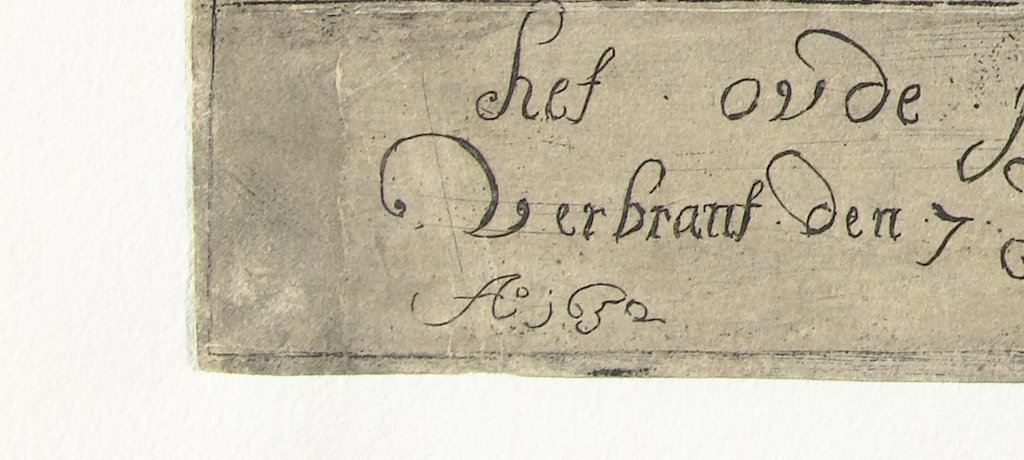 het ovde
Verbrant den 7
A° j652